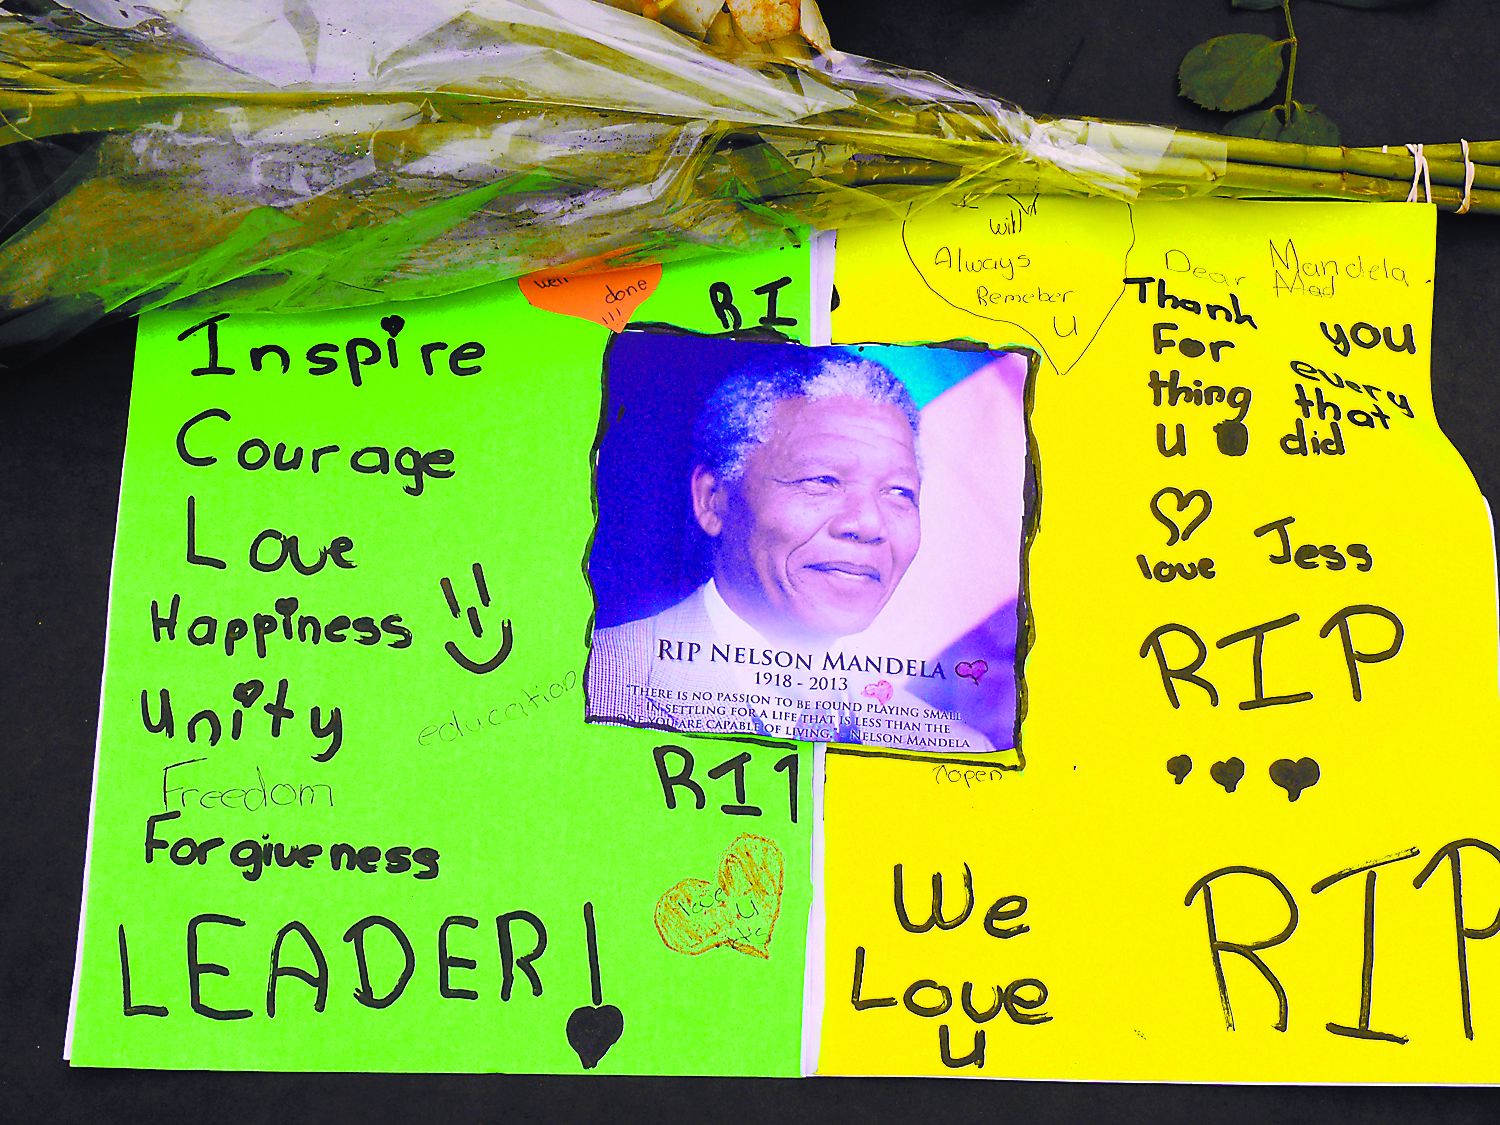 well
done
!!!
RI
Inspire
Courage
Love
Happiness
Unity
education
Freedom
Forgiveness
LEADER!
RIP NELSON MANDELA
1918 - 2013
"THERE IS NO PASSION TO BE FOUND PLAYING SMALL
- IN SETTLING FOR A LIFE THAT IS LESS THAN THE
ONE YOU ARE CAPABLE OF LIVING." - NELSON MANDELA
RIP
love
u
I
will
Always
Remeber
U
Dear Mandela
Mad
Thank you
For every
thing that
U did
love Jess
RIP
open
We
Love
U
RIP